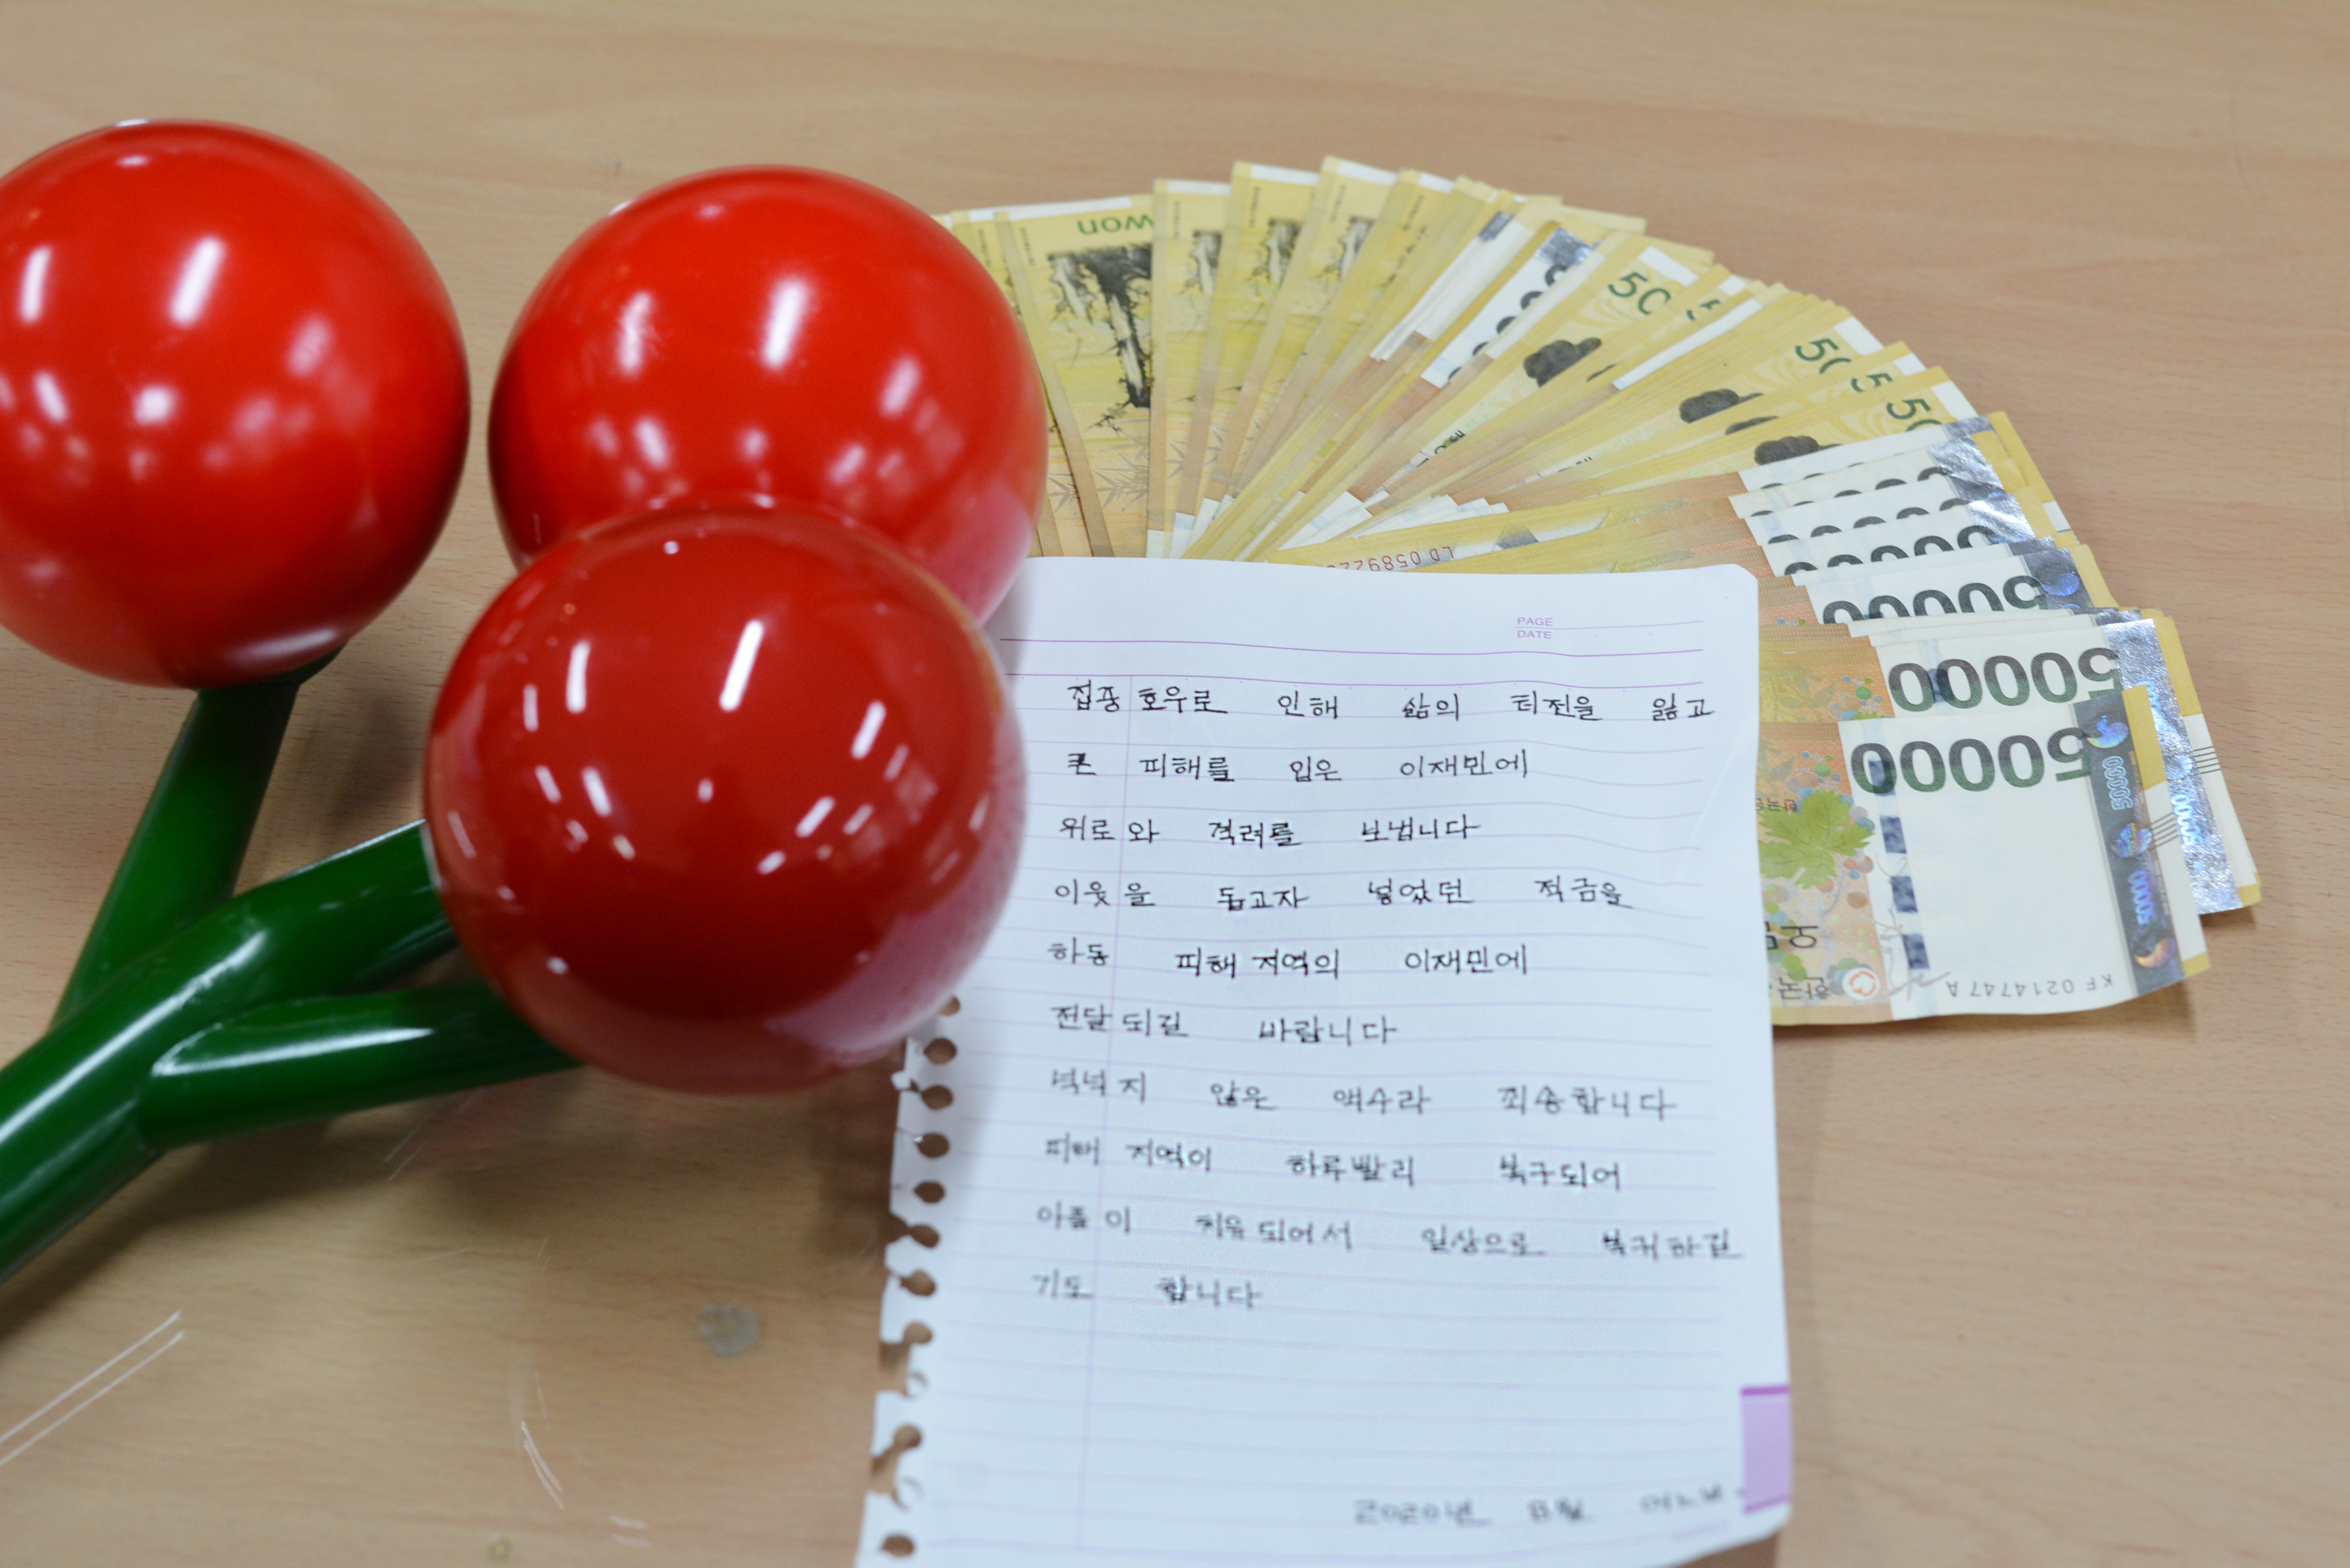 won
50
50
50
50
LD 05892
PAGE
DATE
집중 호우로 인해 삶의 터전을 잃고
큰 피해를 입은 이재민에
위로와 격려를 보냅니다
이웃을 돕고자 넣었던 적금을
하동 피해 지역의 이재민에
전달되길 바랍니다
넉넉지 않은 액수라 죄송합니다
피해 지역이 하루빨리 복구되어
아픔이 치유되어서 일상으로 복귀하길
기도 합니다
2020년 8월 어느날
50000
50000
50000
KF 0214747 A